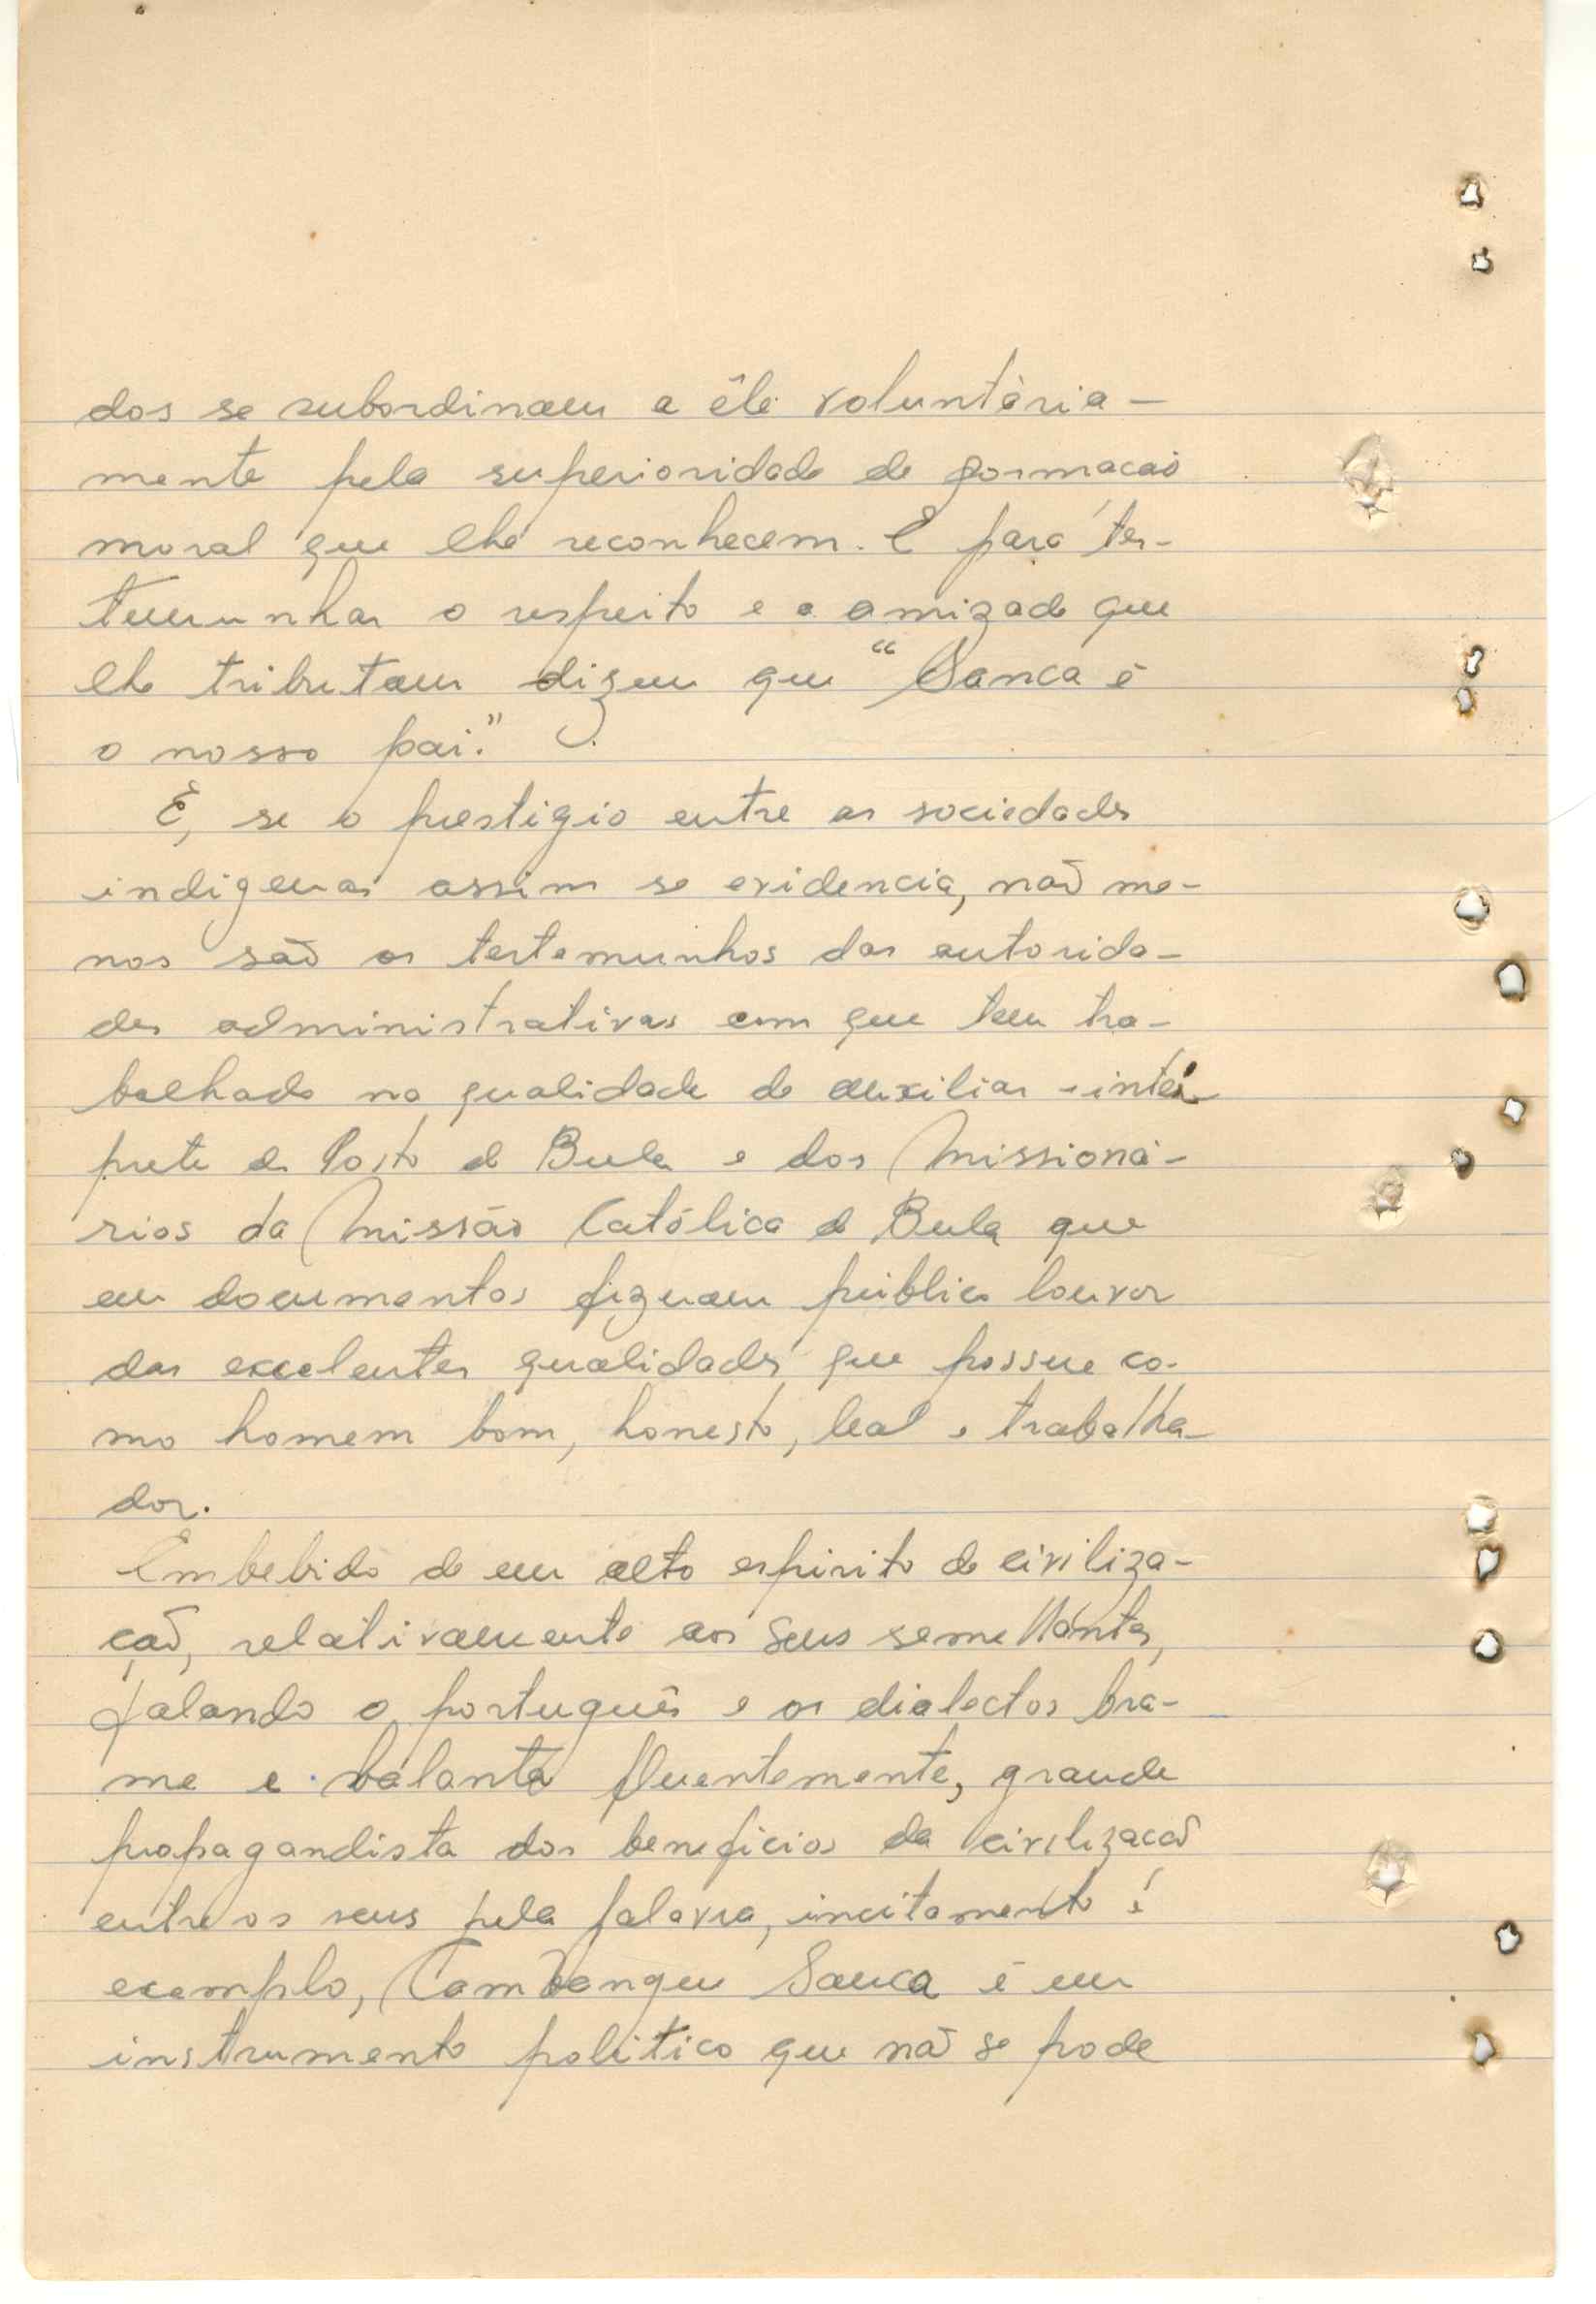 dos se subordinam a êle voluntària-
mente pela superioridade de formacaõ
moral que lhe reconhecem. E para tes-
temunhar o respeito e a amizade que
lhe tributam dizem que "Sanca é
o nosso pai."
E, se o prestigio entre as sociedades
indigenas assim se evidencia, naõ me-
nos saõ os testemunhos das autorida-
des administrativas com que tem tra-
balhado na qualidade de auxiliar-intér
prete do Posto de Bula e dos Missioná-
rios da Missão Católica de Bula que
em documentos fizeram público louvor
das excelentes qualidades que possue co-
mo homem bom, honesto, leal e trabalha-
dor.
Embebido de um alto espirito de civiliza-
çaõ, relativamente aos seus semelhantes,
falando o português e os dialectos bra-
me e balanta fluentemente, grande
propagandista dos beneficios da civilizacaõ
entre os seus pela palavra, incitamento e
exemplo, Cambanque Sanca é um
instrumento politico que naõ se pode